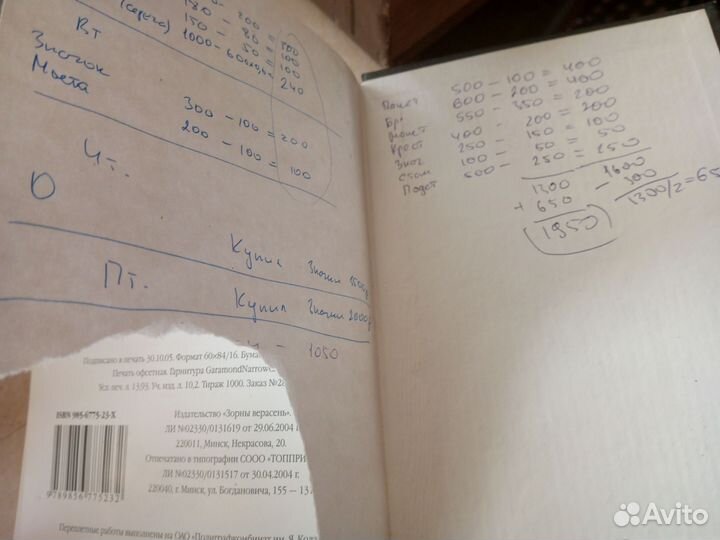 180 - 80 = 100
150 - 50 = 100
(серега) 1000 - 240
Вт
Значок 300 - 100 = 200
Монета 200 - 100 = 100
Чт.
0
Купил Значки
Пт. Купил Значки 2000р
- 1050
Подписано в печать 30.10.05. Формат 60x84/16. Бума
Печать офсетная. Гарнитура GaramondNarrowC.
Усл. печ. л. 13,93. Уч. изд. л. 10,2. Тираж 1000. Заказ №28
ISBN 985-6775-23-X
9789856775232
Издательство «Зорны верасень».
ЛИ №02330/0131619 от 29.06.2004 г
220011, Минск, Некрасова, 20.
Отпечатано в типографии СООО «ТОППРИ
ЛИ №02330/0131517 от 30.04.2004 г.
220040, г. Минск, ул. Богдановича, 155 — 13
Переплетные работы выполнены на ОАО «Полиграфкомбинат им. Я. Кола
500 - 100 = 400
600 - 200 = 400
Бр 550 - 350 = 200
монет 400 - 200 = 200
Крест 250 - 150 = 100
Знач 100 - 50 = 50
Подст 500 - 250 = 250
1300
+ 650
1950
1600
- 300
1300/2 = 65
Avito